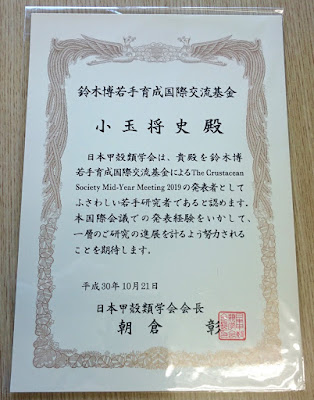 鈴木博若手育成国際交流基金
小玉将史 殿
日本甲殻類学会は、貴殿を鈴木博
若手育成国際交流基金によるThe Crustacean
Society Mid-Year Meeting 2019の発表者として
ふさわしい若手研究者であると認めます.
本国際会議での発表経験をいかして、
一層のご研究の進展を計るよう努力される
ことを期待します.
平成30年10月21日
日本甲殻類学会会長
朝倉 彰